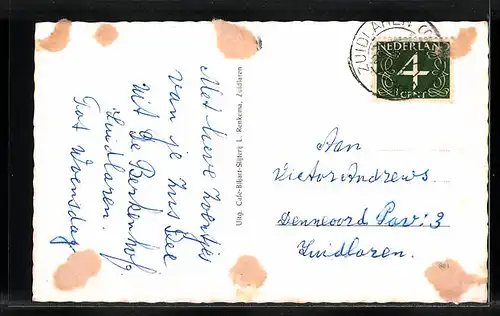 Met lieve zoentjes
van je zus Dee
uit De Borkenhof.
Zuidlaren.
Tot Woensdag
Uitg. Café-Biljart-Slijterij L. Renkema, Zuidlaren
ZUIDLAREN
NEDERLAND
4
CENT
Aan
Victor Andrews
Dennenoord Pav: 3
Zuidlaren.